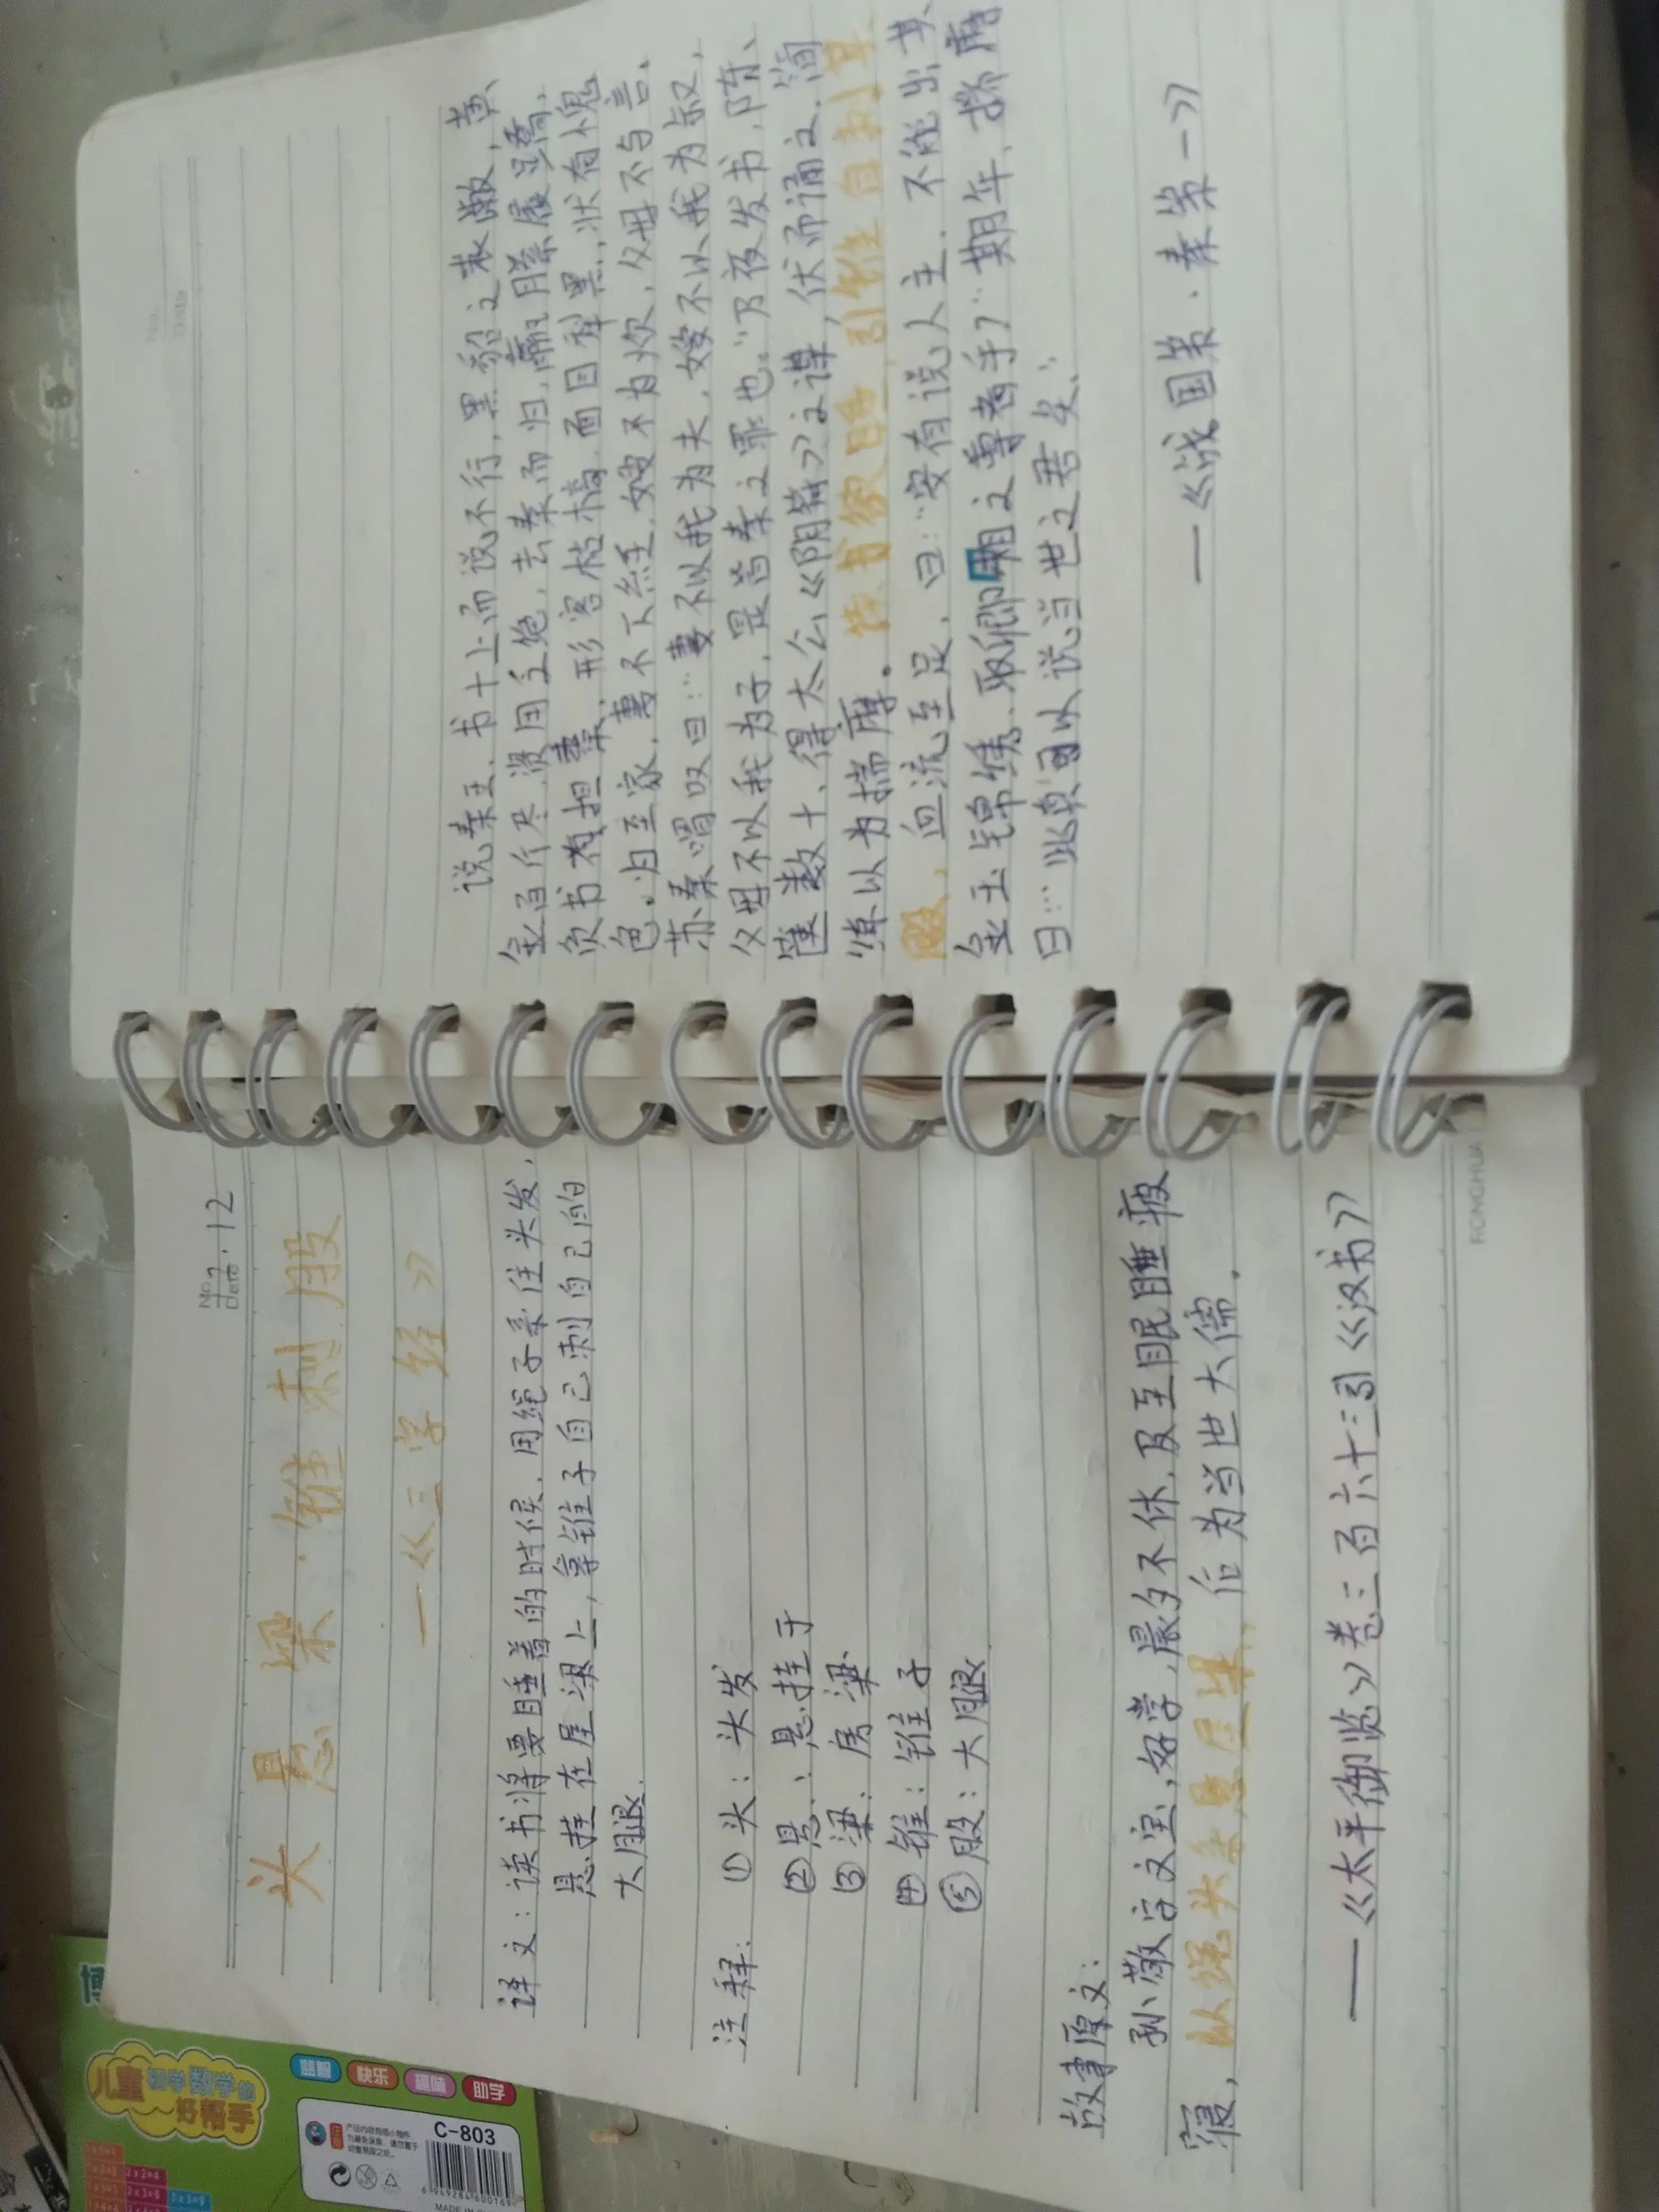 No.
Date 7.12
头悬梁·锥刺股
—《三字经》
译文：读书将要睡着的时候，用绳子系住头发，
悬挂在屋梁上，拿锥子自己刺自己的
大腿.
注释：①头：头发
②悬：悬挂于
③梁：房梁
④锥：锥子
⑤股：大腿
故事原文：
孙敬字文宝，好学，晨夕不休，及至眠睡疲
寝，以绳头系悬屋梁，后为当世大儒.
——《太平御览》卷三百六十三引《汉书》
RONGHUA
No.
Date
说秦王，书十上而说不行，黑貂之裘敝，黄
金百斤尽，资用乏绝，去秦而归，羸縢履蹻，
负书担橐，形容枯槁，面目犁黑，状有愧
色.归至家，妻不下纴，嫂不为炊，父母不与言.
苏秦喟叹曰：“妻不以我为夫，嫂不以我为叔，
父母不以我为子，是皆秦之罪也.”乃夜发书，陈
箧数十，得太公《阴符》之谋，伏而诵之，简
练以为揣摩。读书欲睡，引锥自刺其
股，血流至足，曰：“安有说人主，不能出其
金玉锦绣，取卿相之尊者乎？”期年，揣摩
曰：“此真可以说当世之君矣.”
——《战国策·秦策一》
儿童
数学
好帮手
益智
快乐
趣味
助学
C-803
6 949284 600169
MADE IN
2×2=4